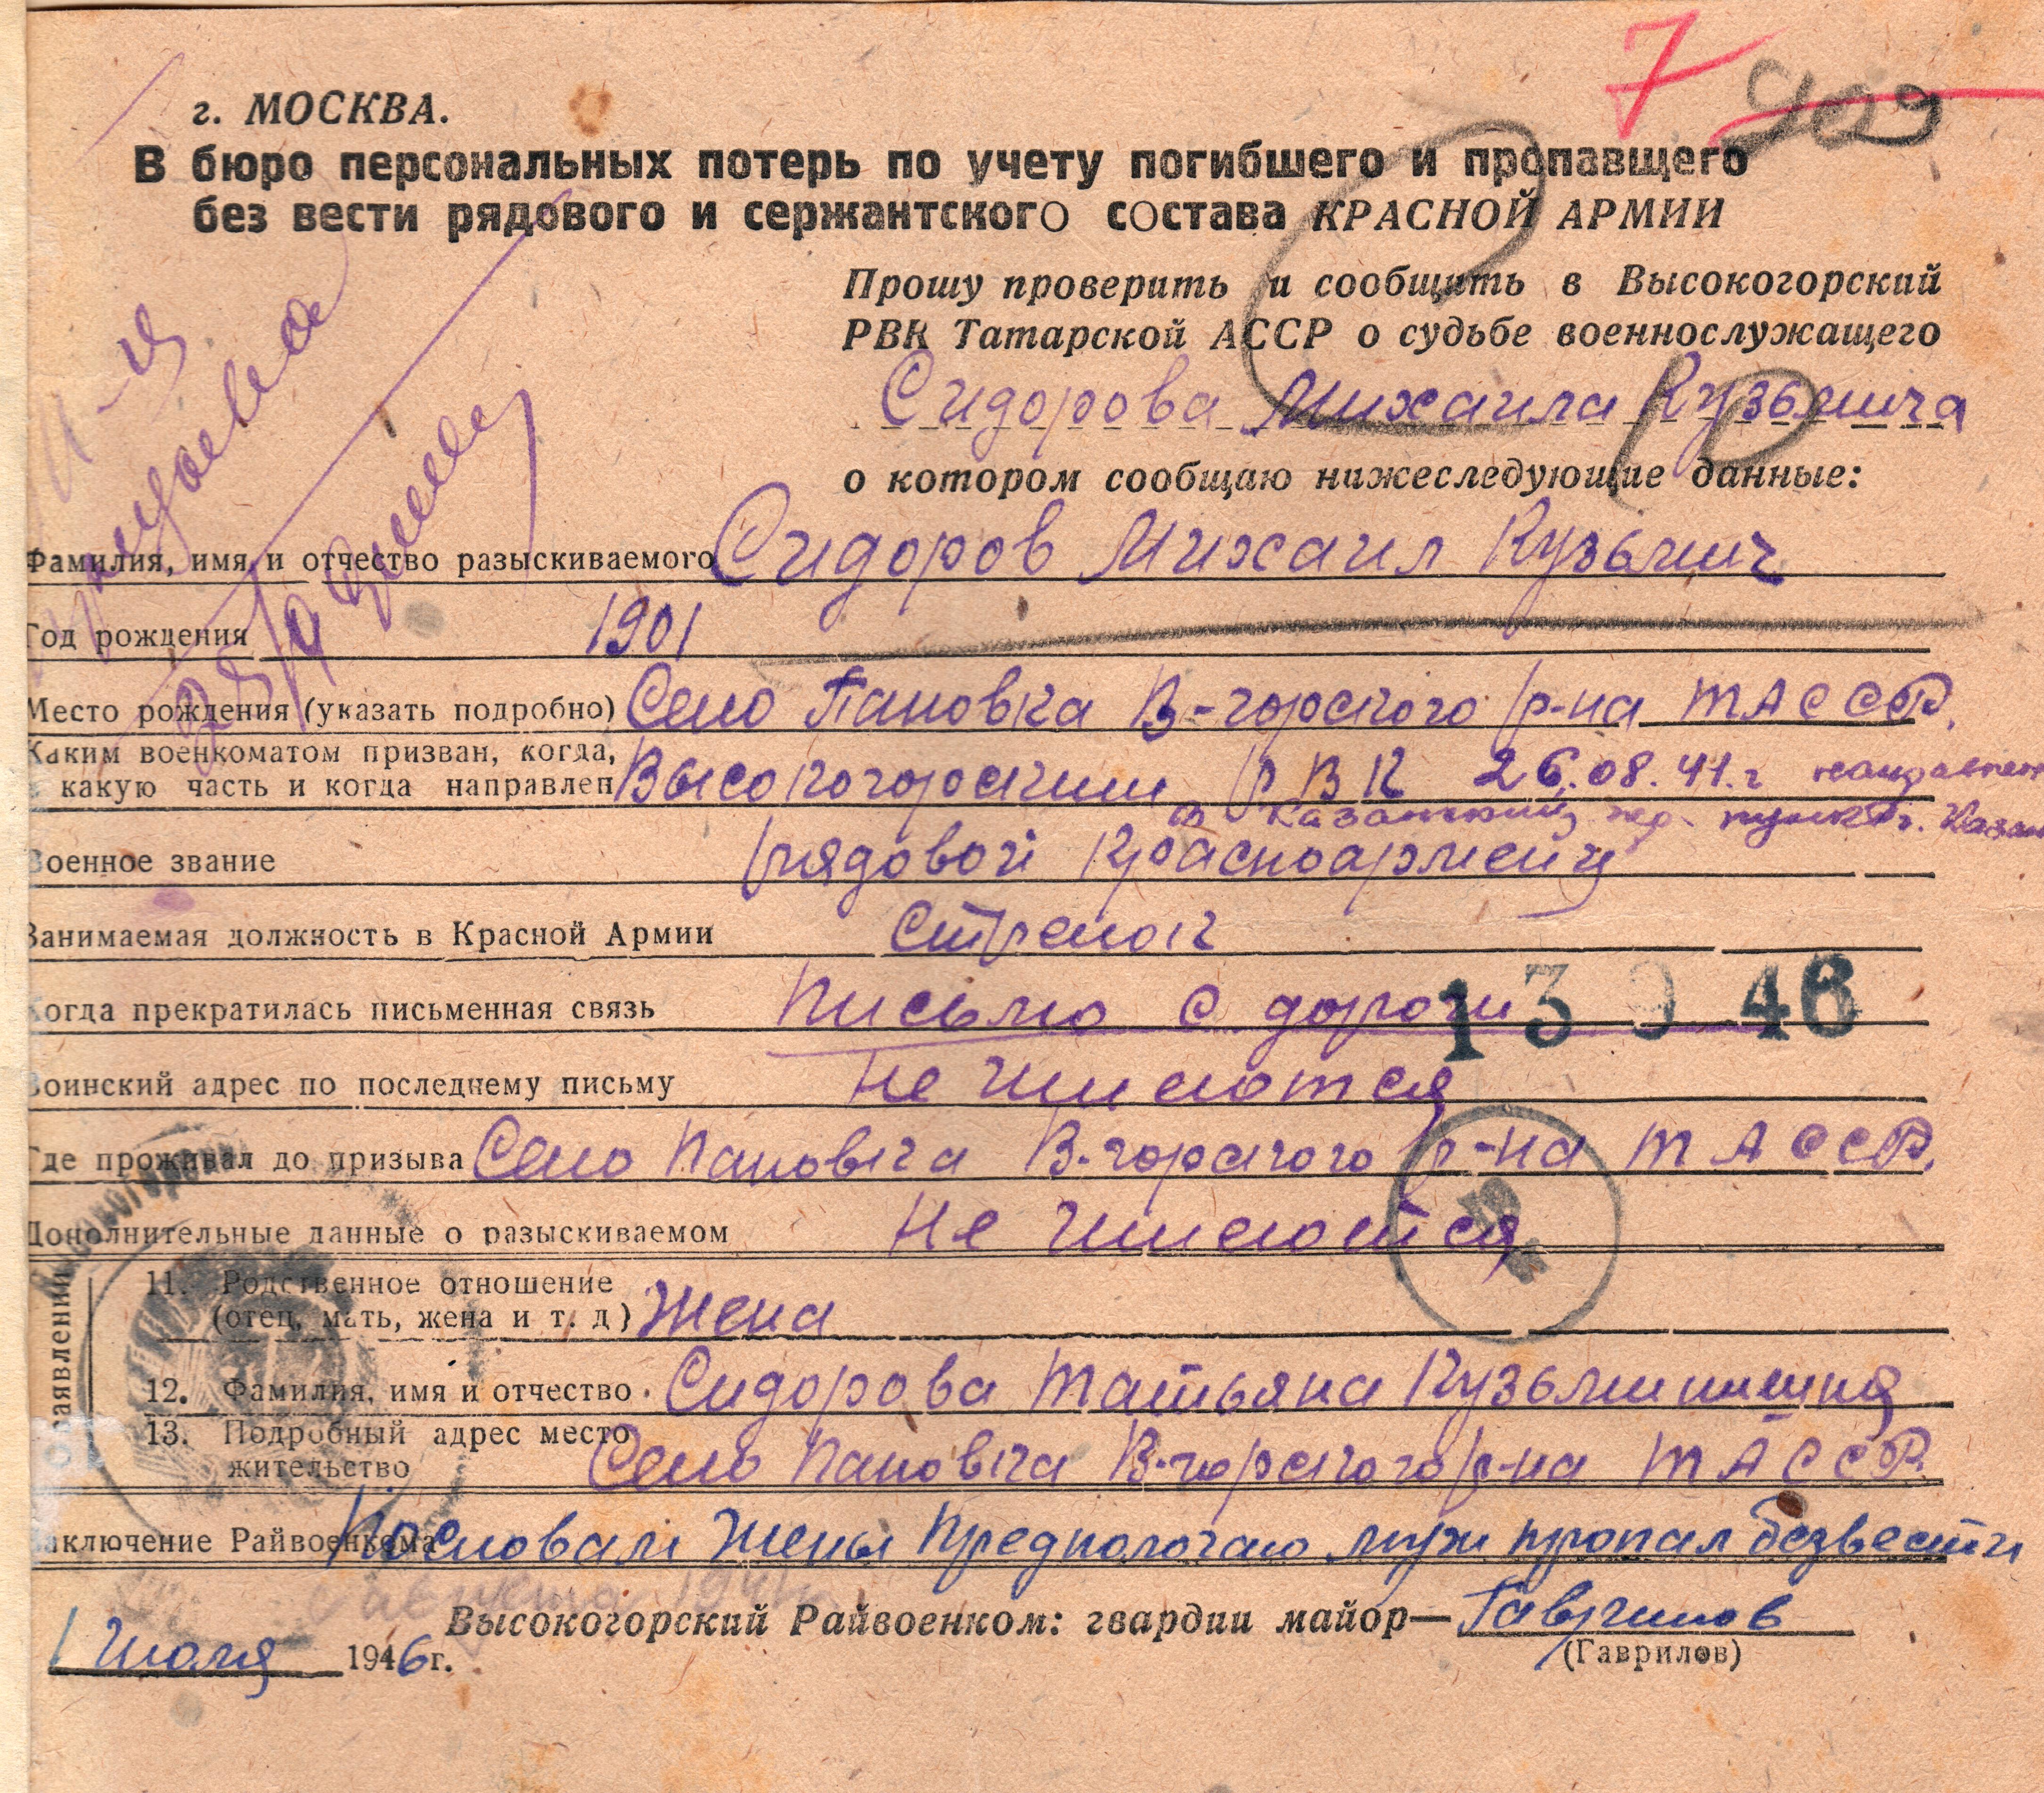 7
г. МОСКВА.
В бюро персональных потерь по учету погибшего и пропавщего
без вести рядового и сержантского состава КРАСНОЙ АРМИИ
Прошу проверить и сообщить в Высокогорский
РВК Татарской АССР о судьбе военнослужащего
Сидорова Михаила Кузьмича
о котором сообщаю нижеследующие данные:
Фамилия, имя, и отчество разыскиваемого Сидоров Михаил Кузьмич
Год рождения 1901
Место рождения (указать подробно) Село Пановка В-горского р-на ТАССР.
Каким военкоматом призван, когда,
какую часть и когда направлен Высокогорским РВК 26.08.41.г направлен
в Казанский пункт г. Казан
Военное звание рядовой Красноармеец
Занимаемая должность в Красной Армии Стрелок
Когда прекратилась письменная связь Письмо с дороги
13 9 46
Воинский адрес по последнему письму Не имеются
Где проживал до призыва Село Пановка В-горского р-на ТАССР.
Дополнительные данные о разыскиваемом Не имеются
заявлении
11. Родственное отношение
(отец, мать, жена и т. д) Жена
12. Фамилия, имя и отчество Сидорова Татьяна
13. Подробный адрес место
жительство Село Пановка В-горского р-на ТАССР
аключение Райвоенкома жены Предпологаю муж пропал безвести
Высокогорский Райвоенком: гвардии майор— Гаврилов
1 июля 1946 г.
(Гаврилов)